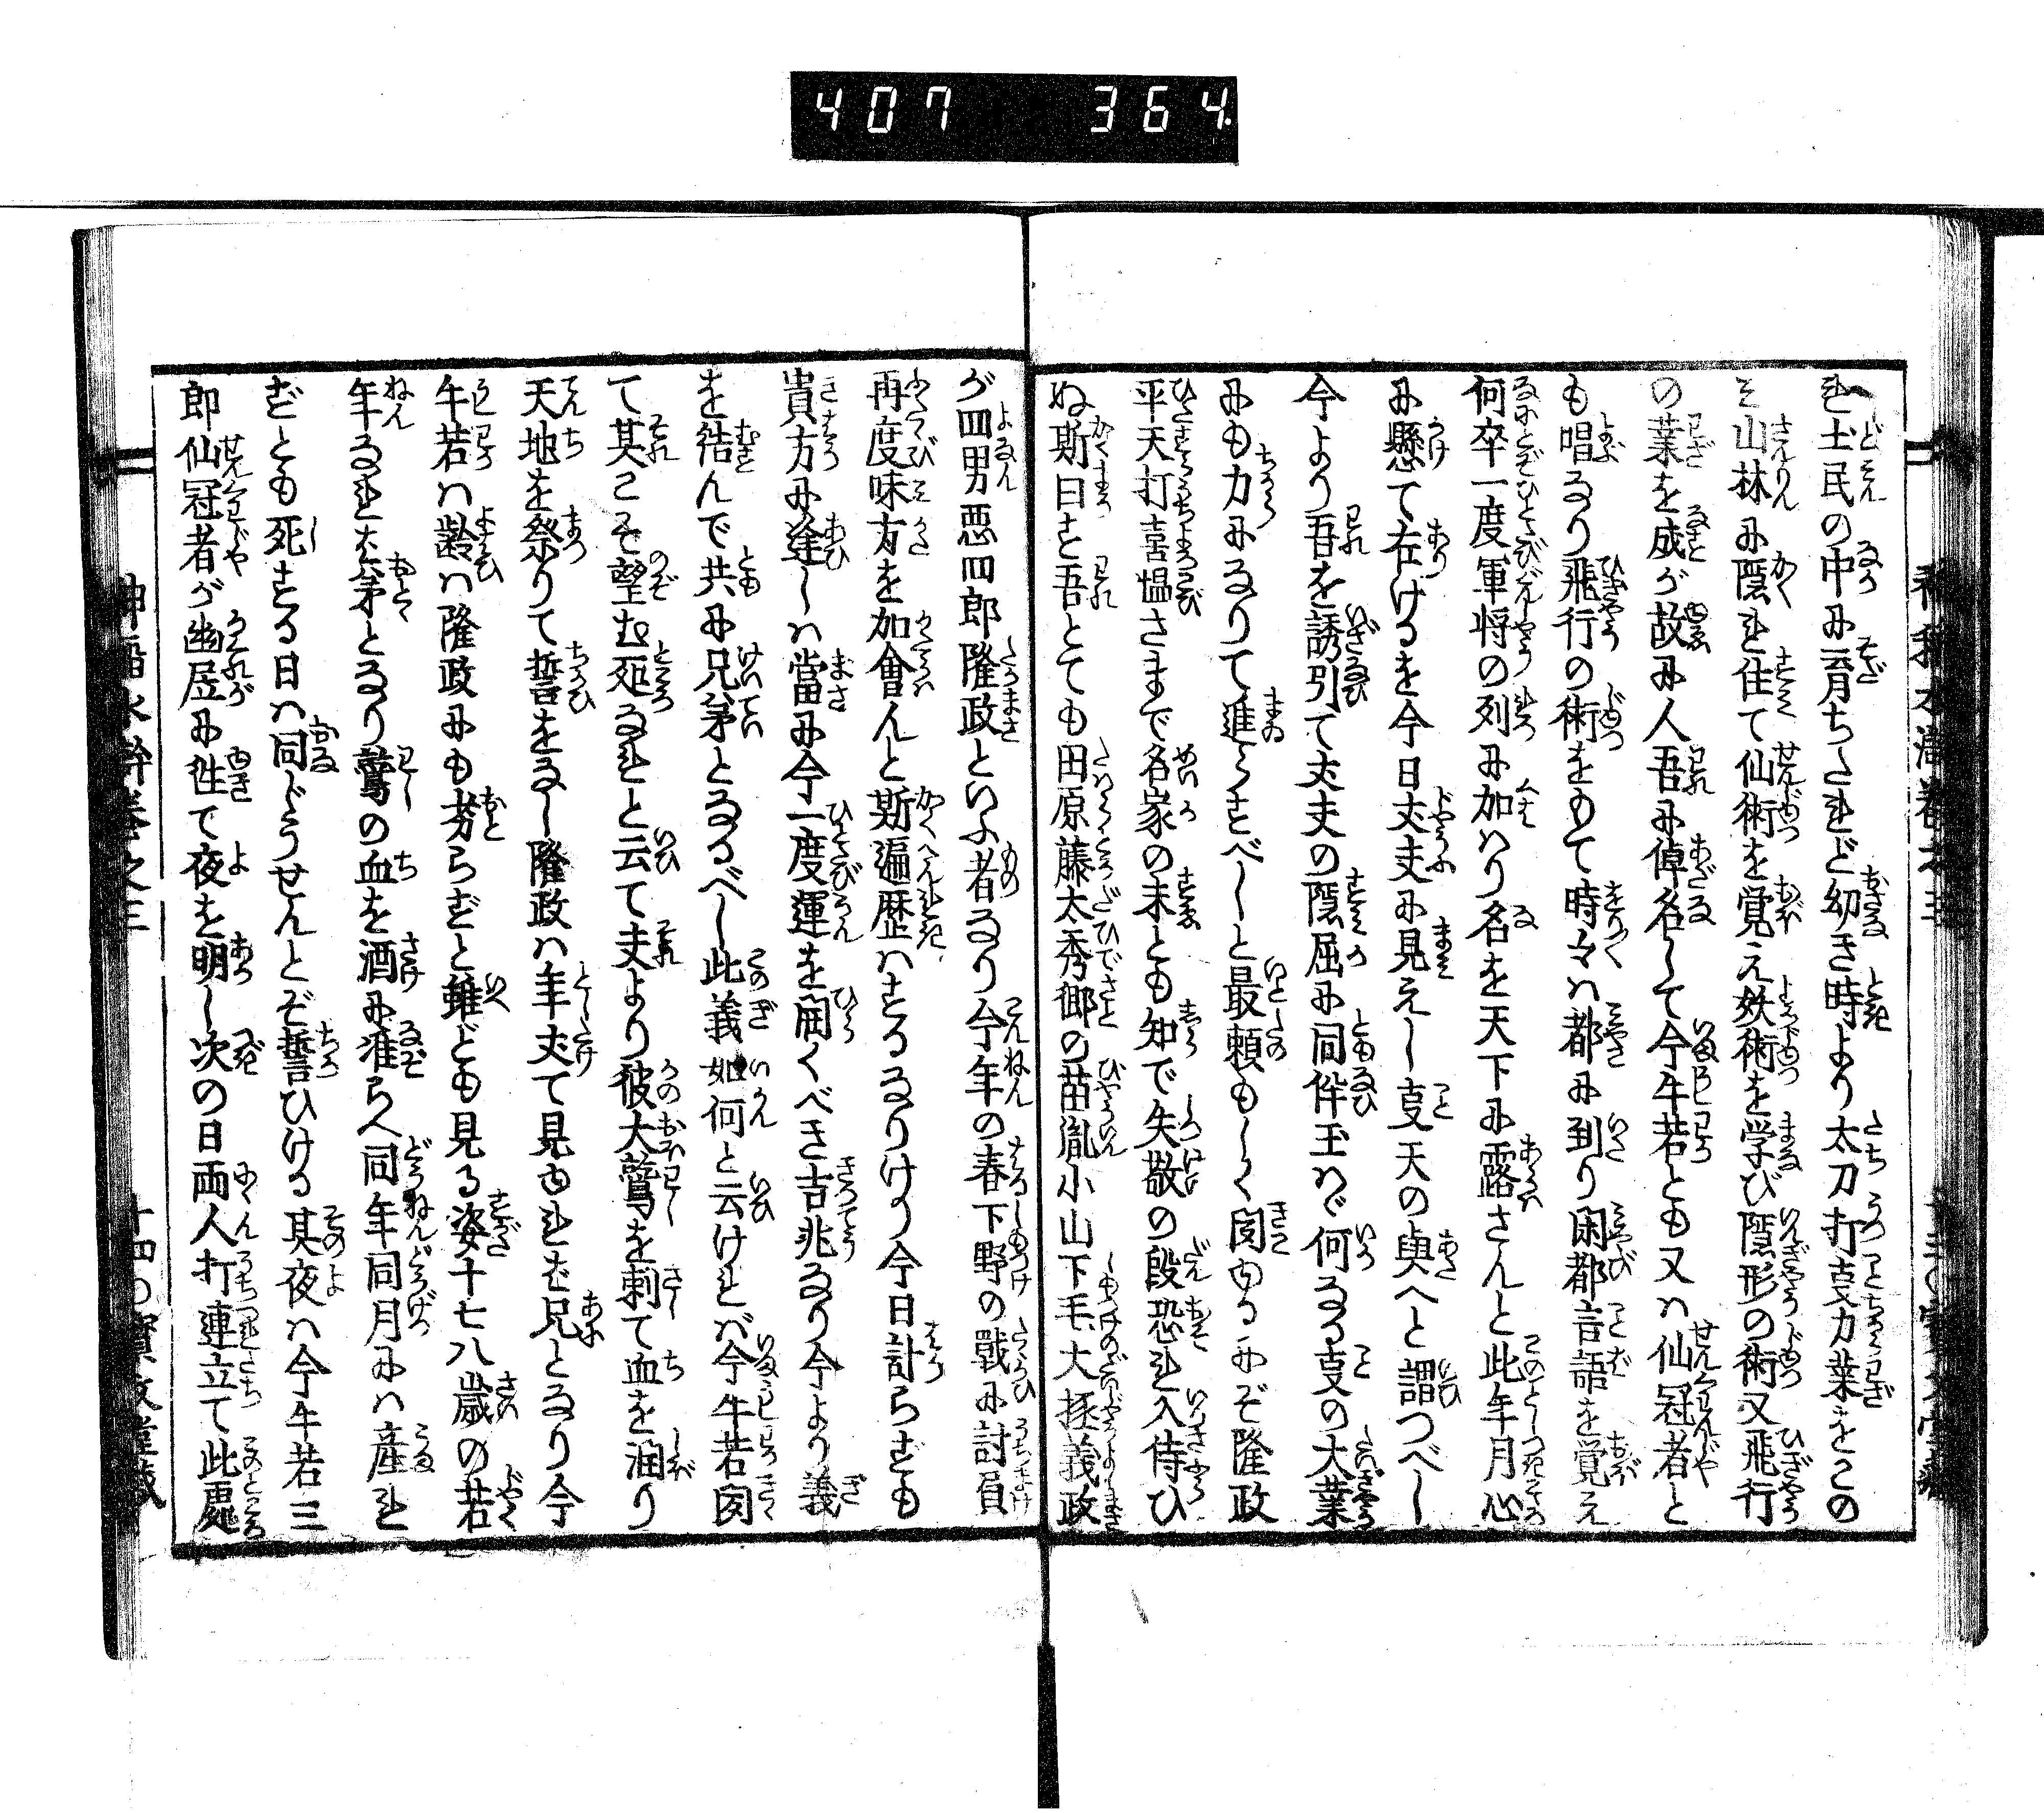 407 364
れ土民の中に育ちたれど幼き時より太刀打支力業をこの
み山林に隠れ住て仙術を覚え妖術を学び隠形の術又飛行
の業を成が故に人吾に倬名して今牛若とも又ハ仙冠者と
も唱るり飛行の術をもて時々ハ都に到り閑都言語を覚え
何卒一度軍将の列に加ハり名を天下に露さんと此年月心
に懸て在けるを今日丈夫に見えし支天の與へと謂つべし
今より吾を誘引て丈夫の隠屈に同伴玉ハゞ何なる支の大業
にも力になりて進らすべしと最頼もしく聞ゆるにぞ隆政
平天打喜愠さまで名家の末とも知で失敬の段恐れ入侍ひ
ぬ斯曰す吾とても田原藤太秀郷の苗胤小山下毛大掾義政
が四男悪四郎隆政といふ者なり今年の春下野の戦に討負
再度味方を加會んと斯遍歴ハするなりけり今日計らずも
貴方に逢しハ當に今一度運を開くべき吉兆なり今より義
を結んで共に兄弟となるべし此義如何と云けれバ今牛若聞
て其こそ望む処なれと云て夫より彼大鷲を刺て血を潤り
天地を祭りて誓をなし隆政ハ年丈て見ゆれば兄となり今
牛若ハ齢ハ隆政にも劣らずと雖ども見る姿十七八歳の若
年なれば弟となり鷲の血を酒に准らへ同年同月にハ産れ
ずとも死する日ハ同じうせんとぞ誓ひける其夜ハ今牛若三
郎仙冠者が幽居に徃て夜を明し次の日両人打連立て此處
十四〇寳文堂蔵